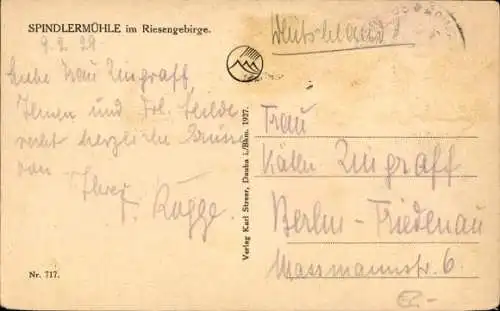 SPINDLERMÜHLE im Riesengebirge.
9.2.29.
Liebe Frau Zingraff,
Ihnen und Frl. Hilde
recht herzliche Grüsse
von Ihrer
F. Rügge.
Nr. 717.
Verlag Karl Streer, Dauba i./Bhm. 1927.
Deutschland
Frau
Käten Zingraff
Berlin-Friedenau
Massmannstr. 6.